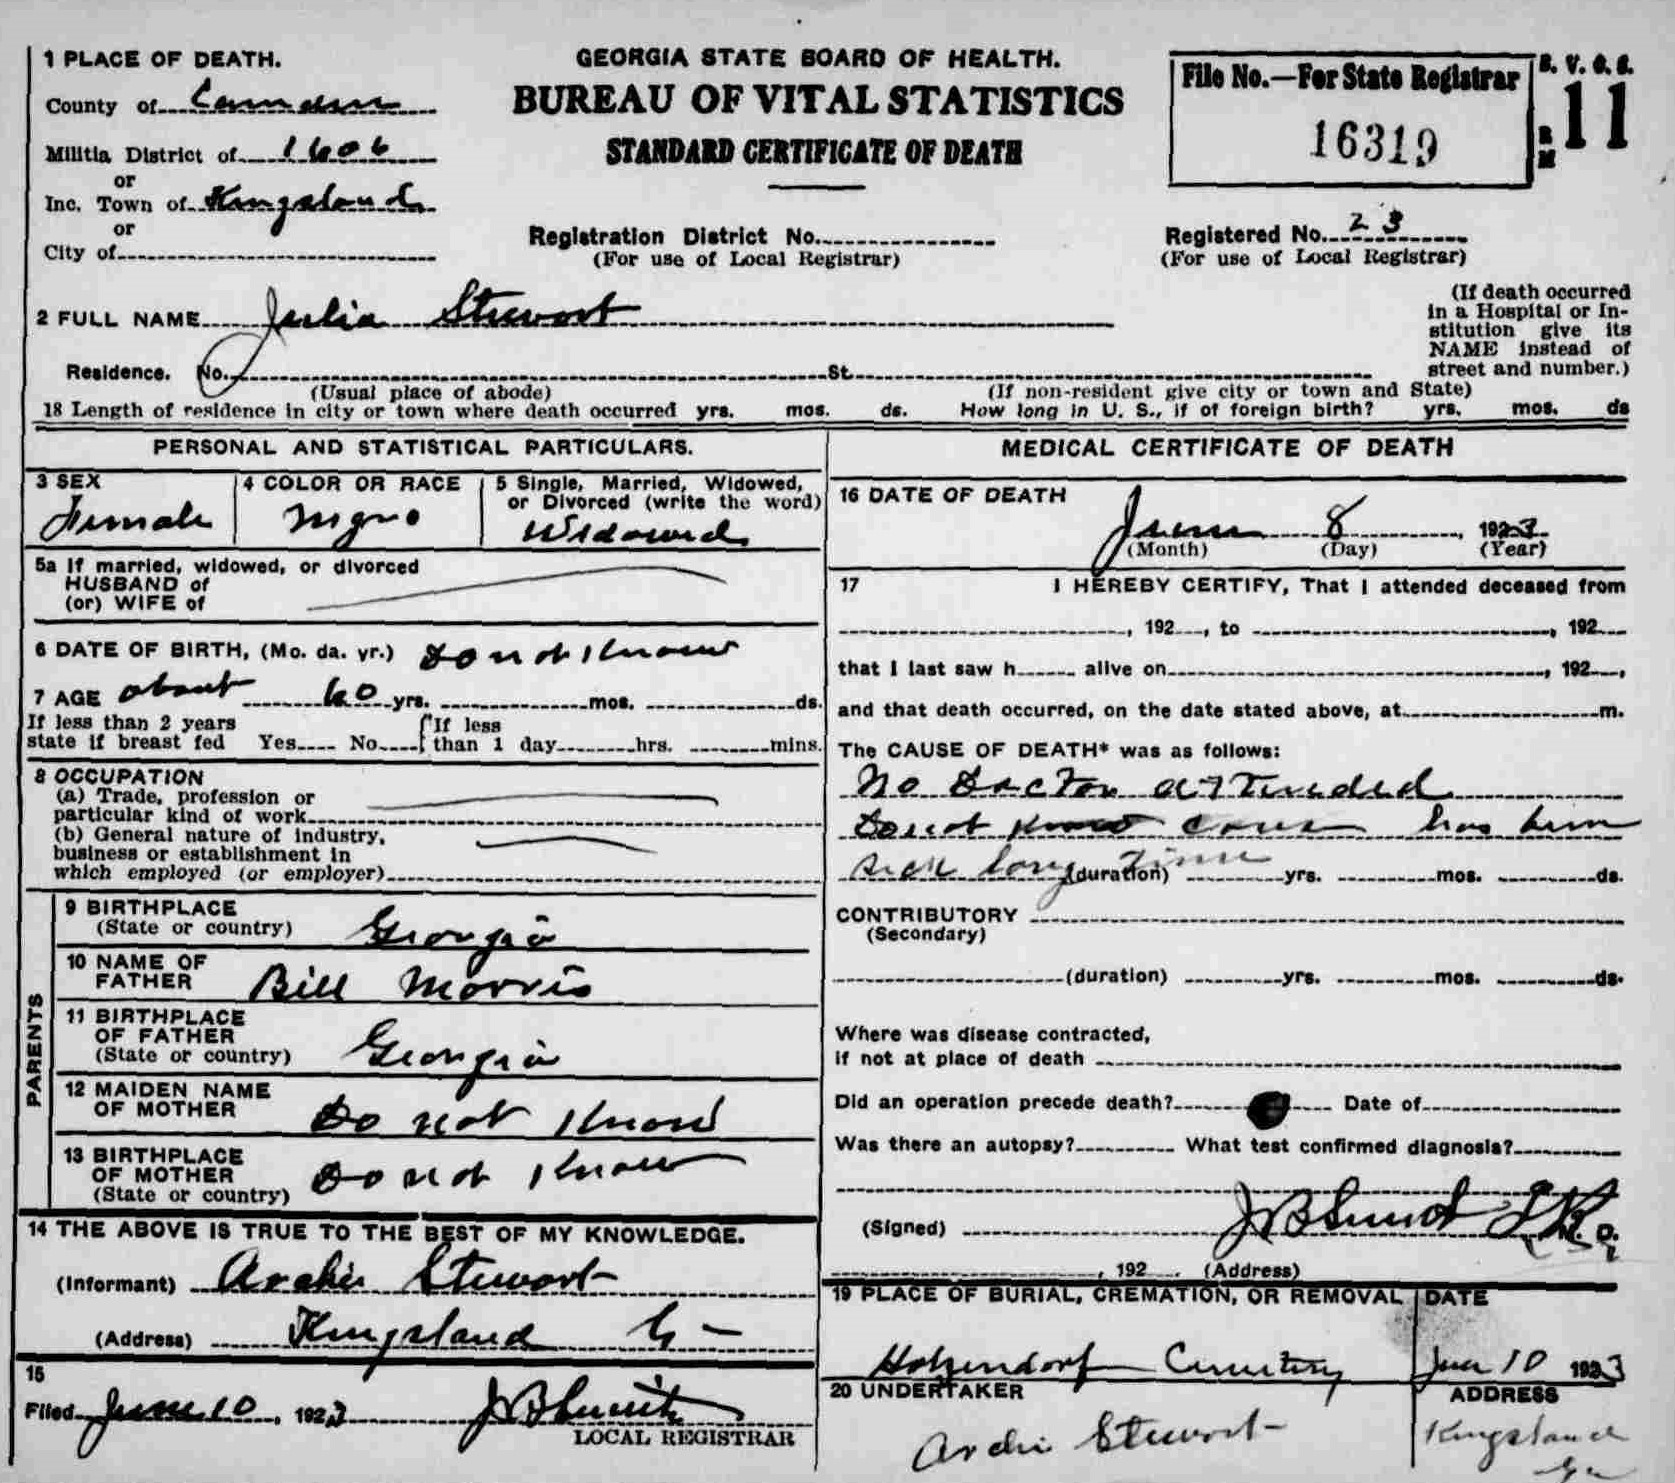 1 PLACE OF DEATH.
County of Camden
Militia District of 1606
or
Inc. Town of Kingsland
or
City of
GEORGIA STATE BOARD OF HEALTH.
BUREAU OF VITAL STATISTICS
STANDARD CERTIFICATE OF DEATH
Registration District No.
(For use of Local Registrar)
File No.—For State Registrar
16319
B. V. S. S.
11
R
M
Registered No. 23
(For use of Local Registrar)
2 FULL NAME Julia Stewart
(If death occurred
in a Hospital or In-
stitution give its
NAME instead of
street and number.)
Residence. No. St.
(Usual place of abode) (If non-resident give city or town and State)
18 Length of residence in city or town where death occurred yrs. mos. ds. How long in U. S., if of foreign birth? yrs. mos. ds
PERSONAL AND STATISTICAL PARTICULARS.
3 SEX
Female
4 COLOR OR RACE
Negro
5 Single, Married, Widowed,
or Divorced (write the word)
Widowed
5a If married, widowed, or divorced
HUSBAND of
(or) WIFE of
6 DATE OF BIRTH, (Mo. da. yr.) Do not Know
7 AGE about 60 yrs. mos. ds.
If less than 2 years
state if breast fed Yes No
If less
than 1 day hrs. mins.
8 OCCUPATION
(a) Trade, profession or
particular kind of work
(b) General nature of industry,
business or establishment in
which employed (or employer)
PARENTS
9 BIRTHPLACE
(State or country) Georgia
10 NAME OF
FATHER Bill Morris
11 BIRTHPLACE
OF FATHER
(State or country) Georgia
12 MAIDEN NAME
OF MOTHER Do not Know
13 BIRTHPLACE
OF MOTHER
(State or country) Do not Know
14 THE ABOVE IS TRUE TO THE BEST OF MY KNOWLEDGE.
(Informant) Archie Stewart
(Address) Kingsland G
15
Filed June 10, 1923
LOCAL REGISTRAR
MEDICAL CERTIFICATE OF DEATH
16 DATE OF DEATH
June 8, 1923
(Month) (Day) (Year)
17 I HEREBY CERTIFY, That I attended deceased from
, 192 , to , 192
that I last saw h alive on , 192 ,
and that death occurred, on the date stated above, at m.
The CAUSE OF DEATH* was as follows:
No Doctor attended
Do not Know has
sick long time (duration) yrs. mos. ds.
CONTRIBUTORY
(Secondary)
(duration) yrs. mos. ds.
Where was disease contracted,
if not at place of death
Did an operation precede death? Date of
Was there an autopsy? What test confirmed diagnosis?
(Signed)
, 192 . (Address)
19 PLACE OF BURIAL, CREMATION, OR REMOVAL
Holzendorf Cemetery
DATE
June 10 1923
20 UNDERTAKER
Archie Stewart
ADDRESS
Kingsland
Ga